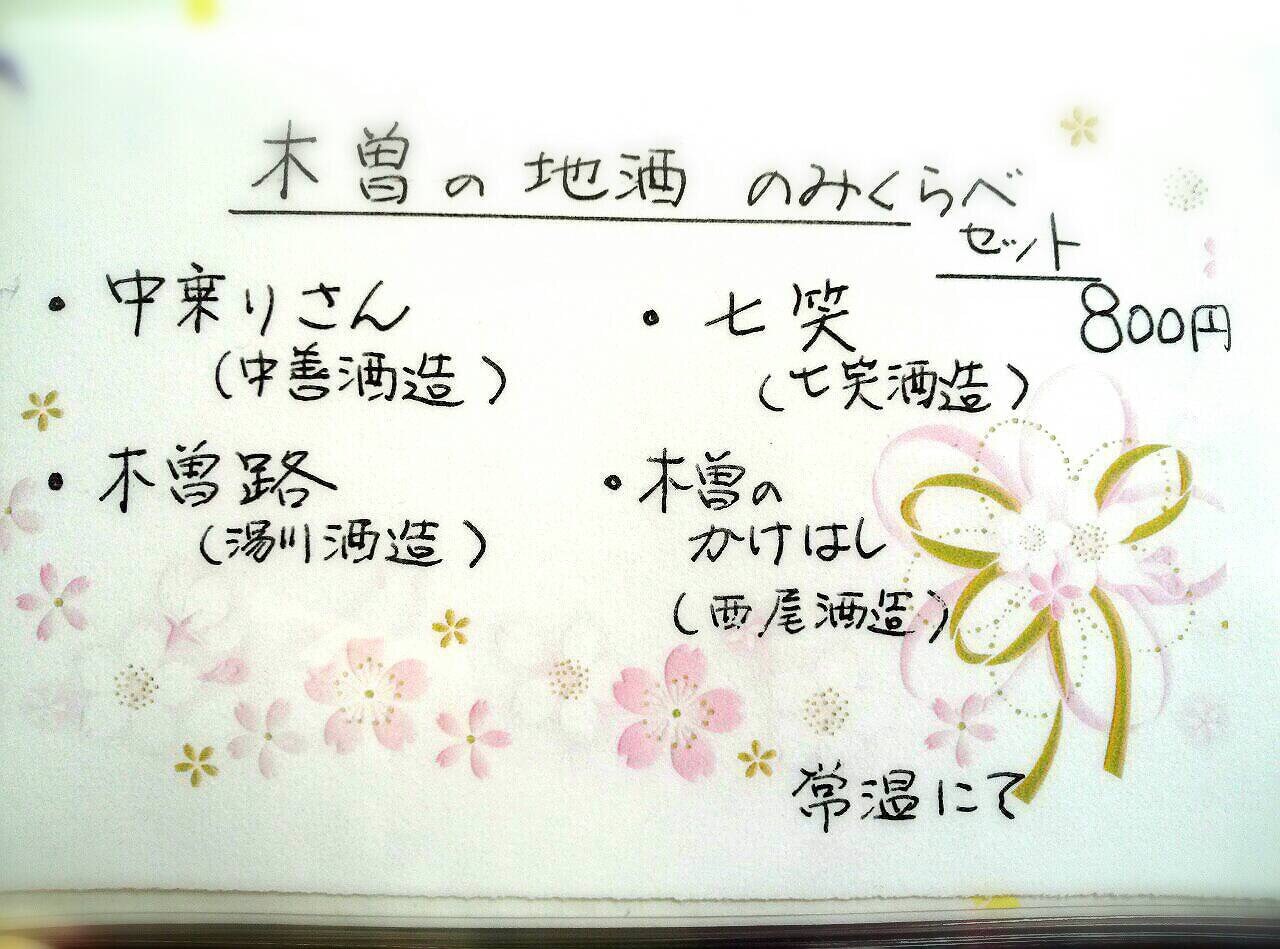 木曽の地酒 のみくらべ
セット
800円
・中乗りさん
(中善酒造)
・七笑
(七笑酒造)
・木曽路
(湯川酒造)
・木曽の
かけはし
(西尾酒造)
常温にて